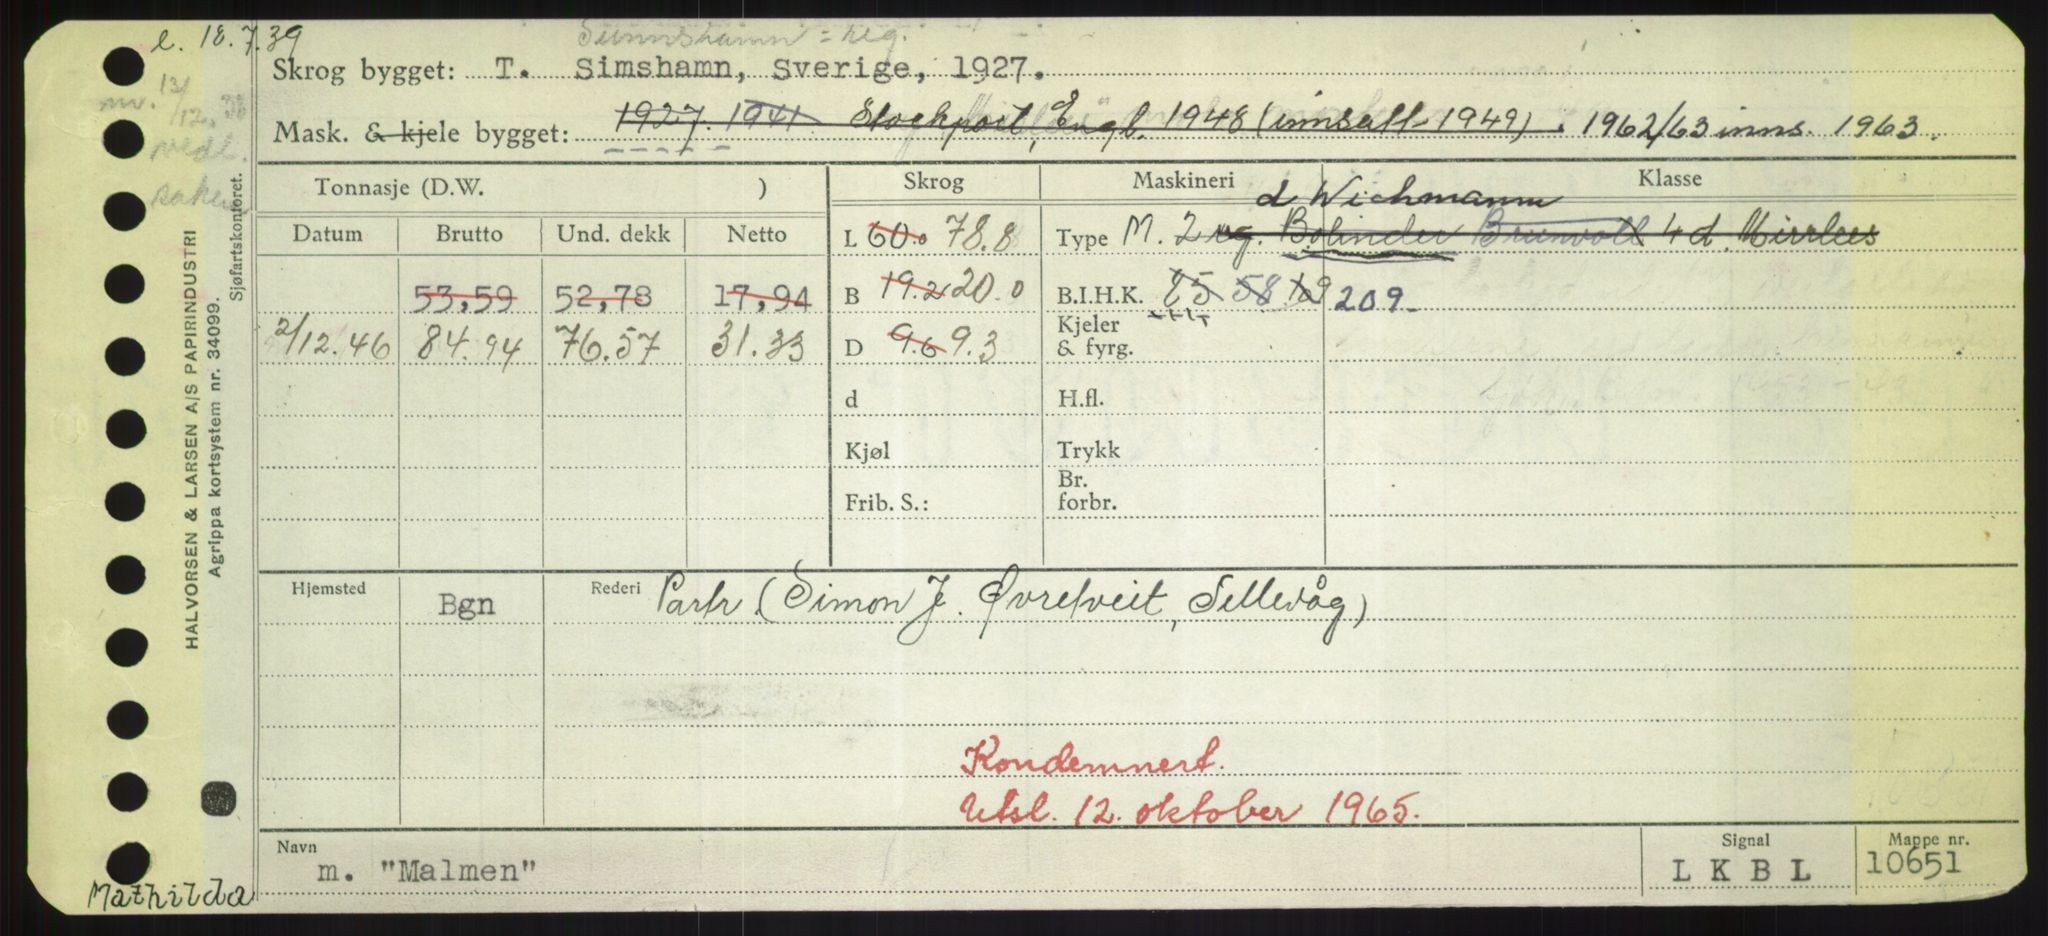 e. 18.7.39
Simshamn = reg.
Skrog bygget: T. Simshamn, Sverige, 1927.
Mask. & kjele bygget: 1927. 1941. Stockport, Engl. 1948 (innsatt 1949). 1962/63 inns. 1963.
nv. 12/12.38
vedl.
saken
Tonnasje (D.W. )
Skrog
Maskineri
Klasse
d Wichmann
Datum
Brutto
Und. dekk
Netto
L 60.0 78.8
Type M. 2 sg. Bolinder Brunvoll 4 d. Mirrlees
53,59 52,78 17,94
B 19.2 20.0
B.I.H.K. 85 58 169 209-
2/12.46 84.94 76.57 31.33
D 9.6 9.3
Kjeler
& fyrg.
d
H.fl.
Kjøl
Trykk
Frib. S.:
Br.
forbr.
Hjemsted
Bgn
Rederi
Partr. (Simon J. Øvretveit, Sellevåg)
Kondemnert.
Utsl. 12. oktober 1965.
Navn
m. "Malmen"
Signal
L K B L
Mappe nr.
10651
Mathilda
HALVORSEN & LARSEN A/S PAPIRINDUSTRI
Agrippa kortsystem nr. 34099.
Sjøfartskontoret.